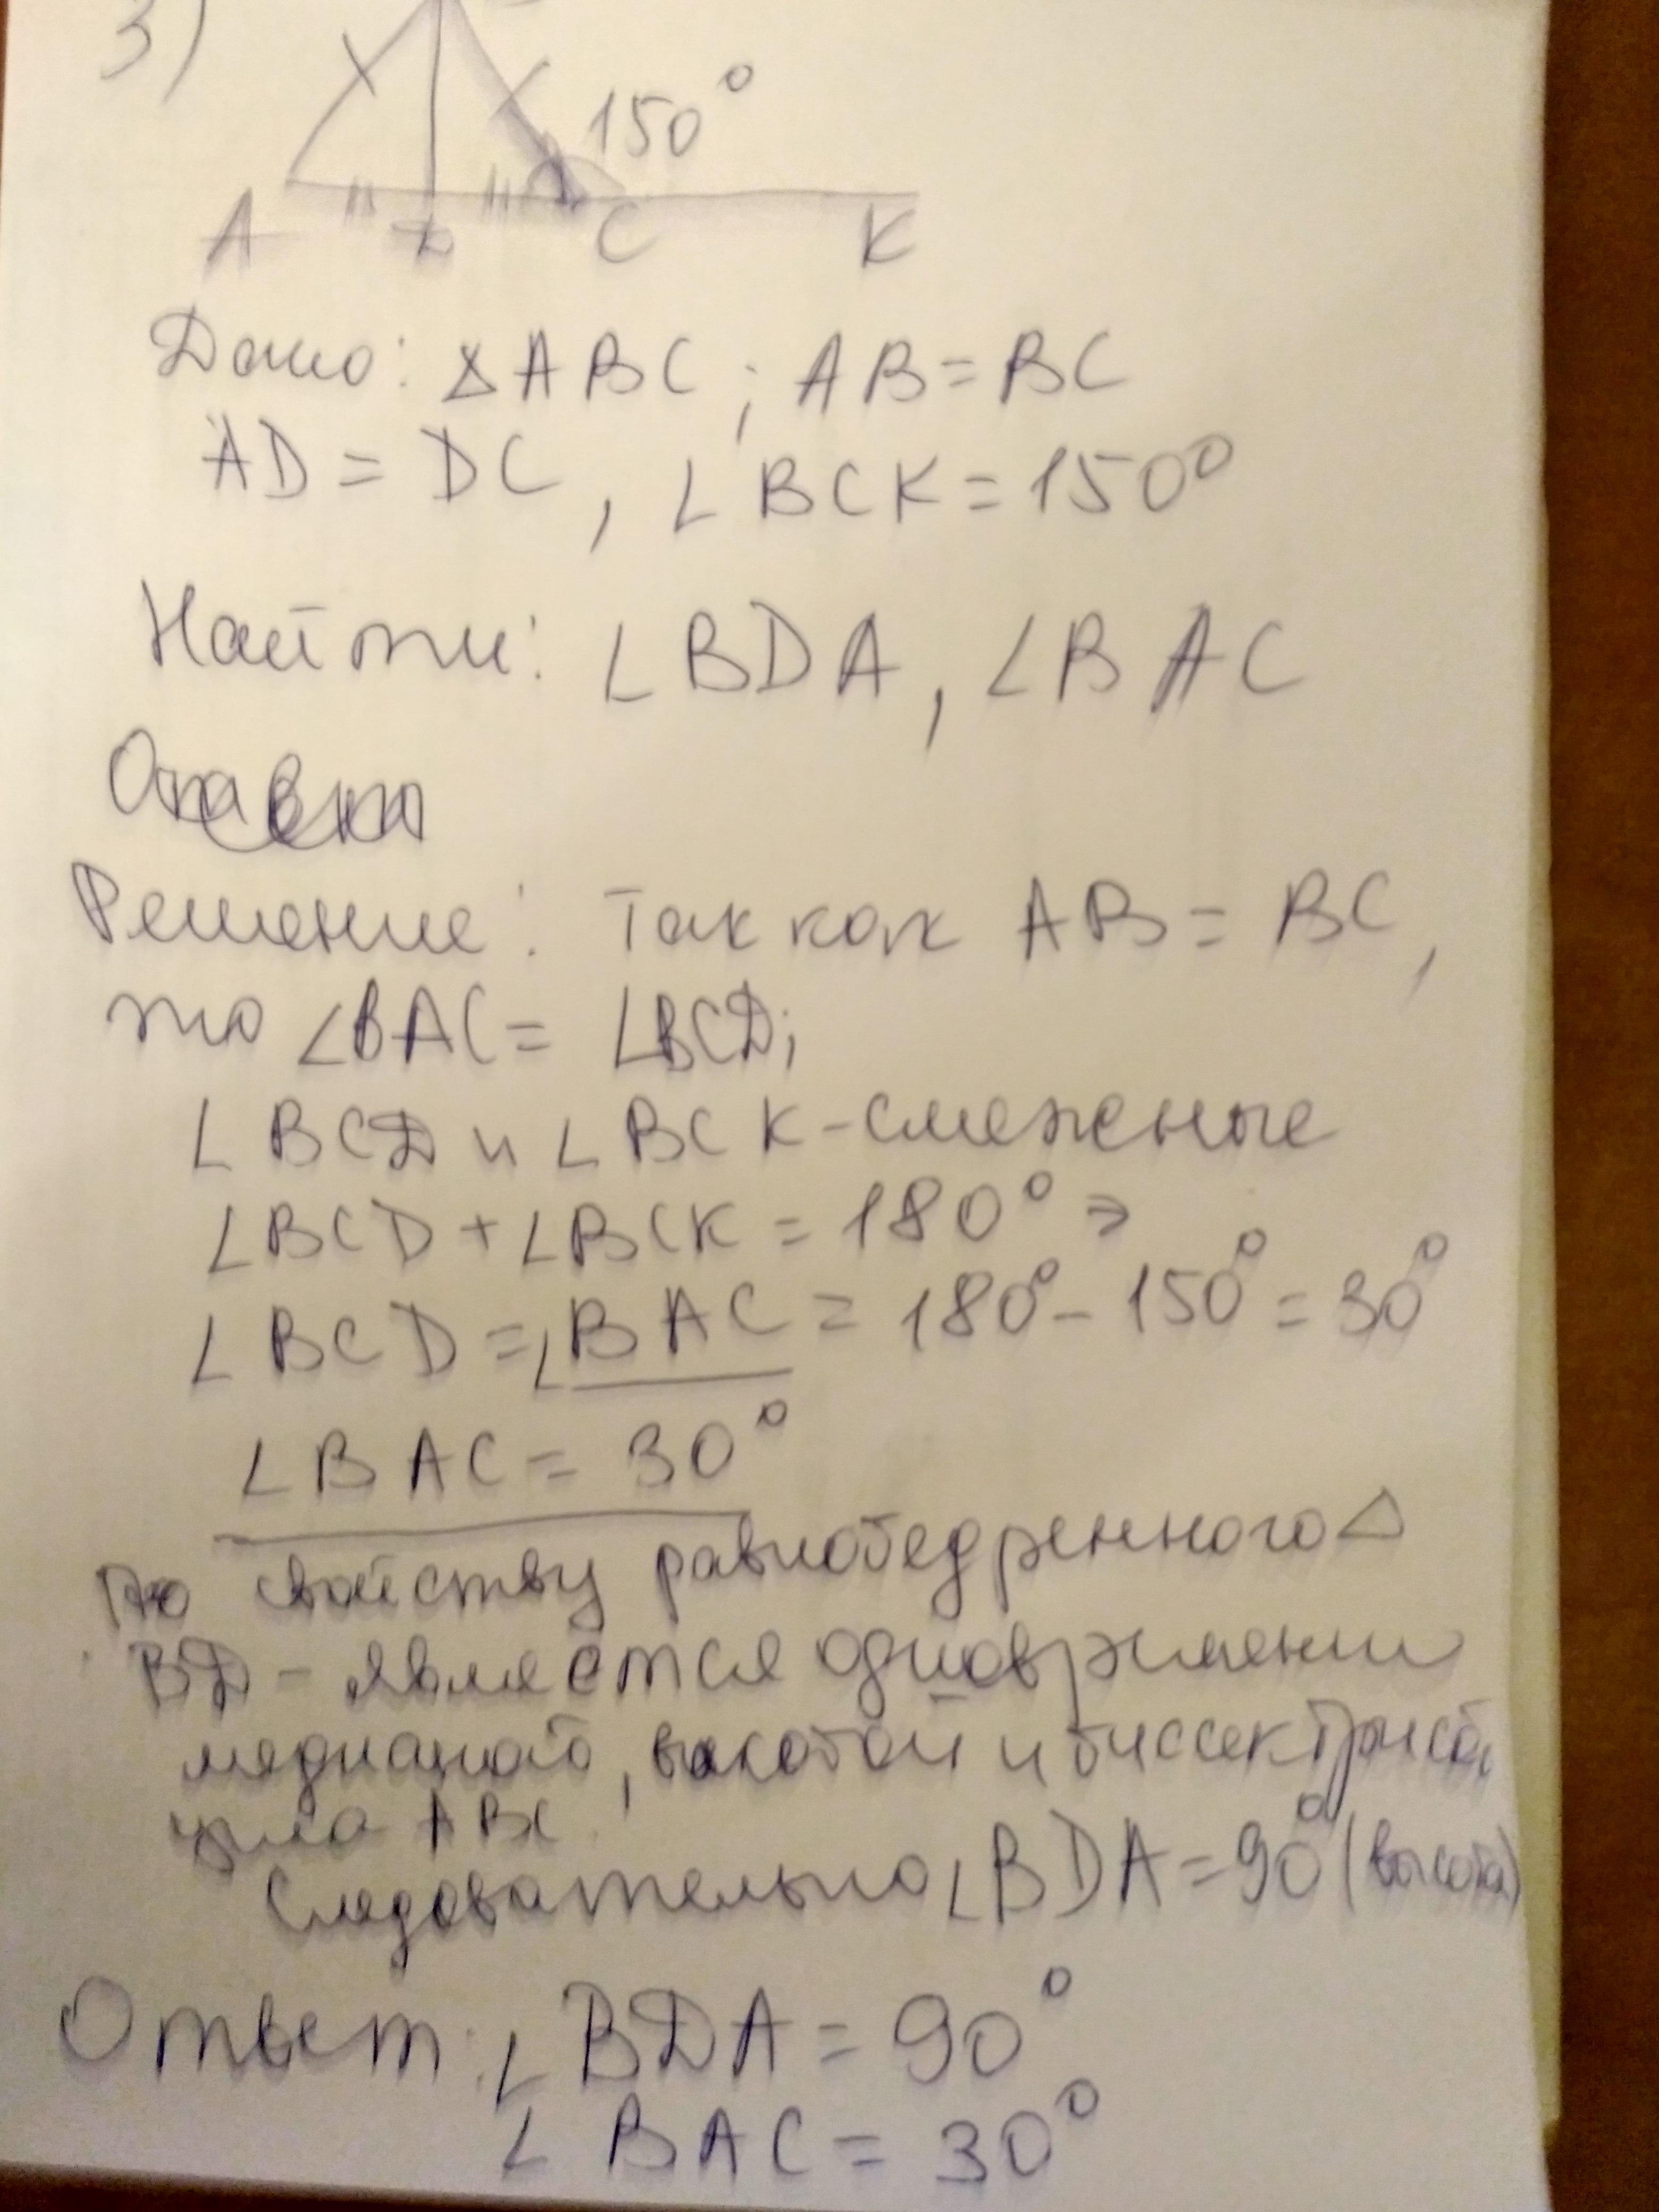 3)
150°
A D C K
Дано: △ABC; AB=BC
AD = DC, ∠BCK=150°
Найти: ∠BDA, ∠BAC
Решение: Так как AB = BC,
то ∠BAC = ∠BCD;
∠BCD и ∠BCK-смежные
∠BCD+∠BCK = 180° ⇒
∠BCD =∠BAC = 180°- 150° = 30°
∠BAC = 30°
По свойству равнобедренного △
BD - является одновременно
медианой, высотой и биссектрисой
угла ABC.
Следовательно ∠BDA=90° (высота)
Ответ: ∠BDA = 90°
∠BAC = 30°